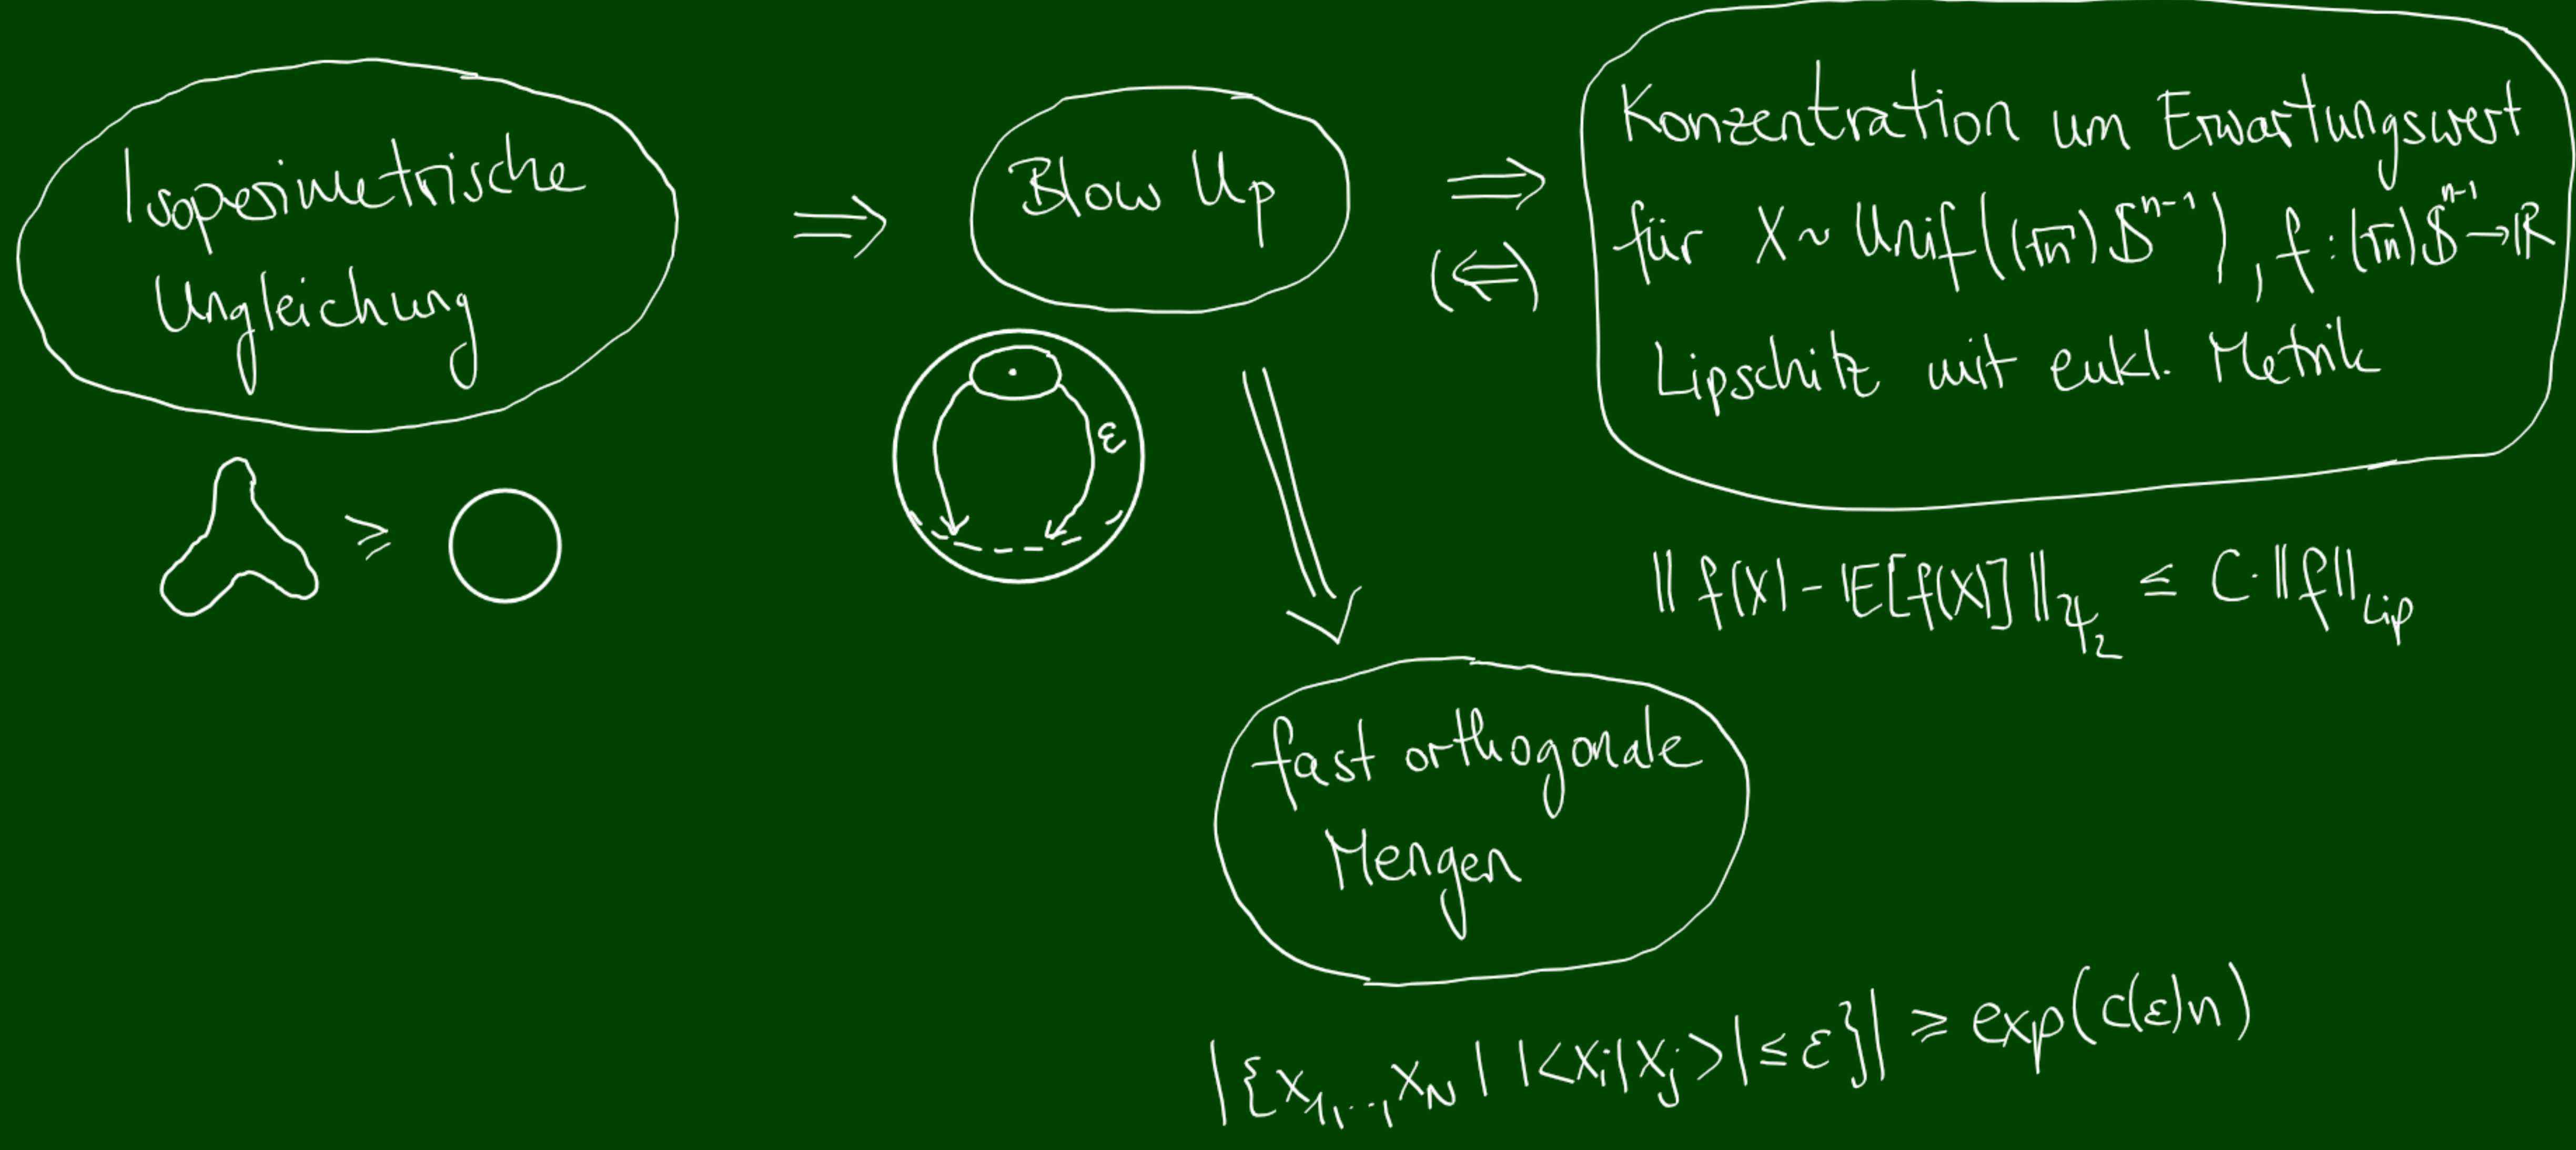 Isoperimetrische
Ungleichung
⇒
Blow Up
⇒
(⇐)
Konzentration um Erwartungswert
für X ~ Unif((√n) S^{n-1}), f: (√n) S^{n-1} → ℝ
Lipschitz mit eukl. Metrik
≥
ε
‖ f(X) - 𝔼[f(X)] ‖_{ψ_2} ≤ C · ‖f‖_{Lip}
fast orthogonale
Mengen
|{x_1,..,x_N | |<x_i|x_j>| ≤ ε}| ≥ exp(c(ε)n)